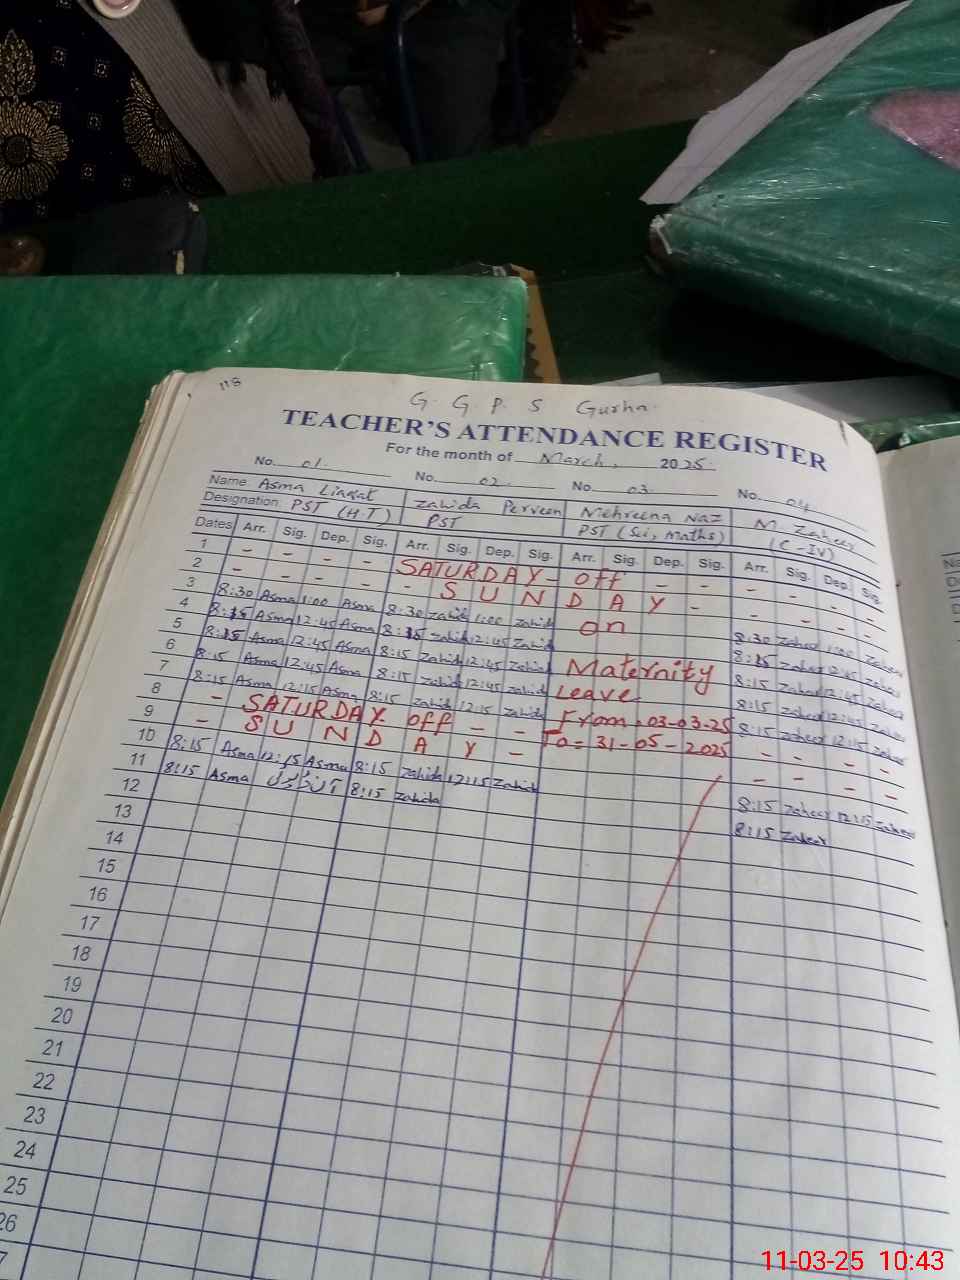 118
G. G. P. S Gurha.
TEACHER'S ATTENDANCE REGISTER
For the month of March, 2025.
No. 01. No. 02. No. 03. No. 04.
Name: Asma Liaqat Zahida Perveen Mehreena Naz M. Zaheer
Designation: PST (H.T) PST PST (Sci, Maths) (C-IV)
Dates Arr. Sig. Dep. Sig. Arr. Sig. Dep. Sig. Arr. Sig. Dep. Sig. Arr. Sig. Dep. Sig.
1 - - - - SATURDAY - off - - - - - -
2 - - - - - SUNDAY - - - - -
3 8:30 Asma 1:00 Asma 8:30 Zahida 1:00 Zahida on 8:30 Zaheer 1:00 Zaheer
4 8:15 Asma 12:45 Asma 8:15 Zahida 12:45 Zahida Maternity 8:15 Zaheer 12:45 Zaheer
5 8:15 Asma 12:45 Asma 8:15 Zahida 12:45 Zahida Leave 8:15 Zaheer 12:45 Zaheer
6 8:15 Asma 12:45 Asma 8:15 Zahida 12:45 Zahida From: 03-03-25 8:15 Zaheer 12:45 Zaheer
7 8:15 Asma 12:15 Asma 8:15 Zahida 12:15 Zahida To = 31-05-2025 8:15 Zaheer 12:15 Zaheer
8 - SATURDAY off - - - - - -
9 - SUNDAY - - - - -
10 8:15 Asma 12:15 Asma 8:15 Zahida 12:15 Zahida 8:15 Zaheer 12:15 Zaheer
11 8:15 Asma 8:15 Zahida 8:15 Zaheer
12
13
14
15
16
17
18
19
20
21
22
23
24
25
26
11-03-25 10:43